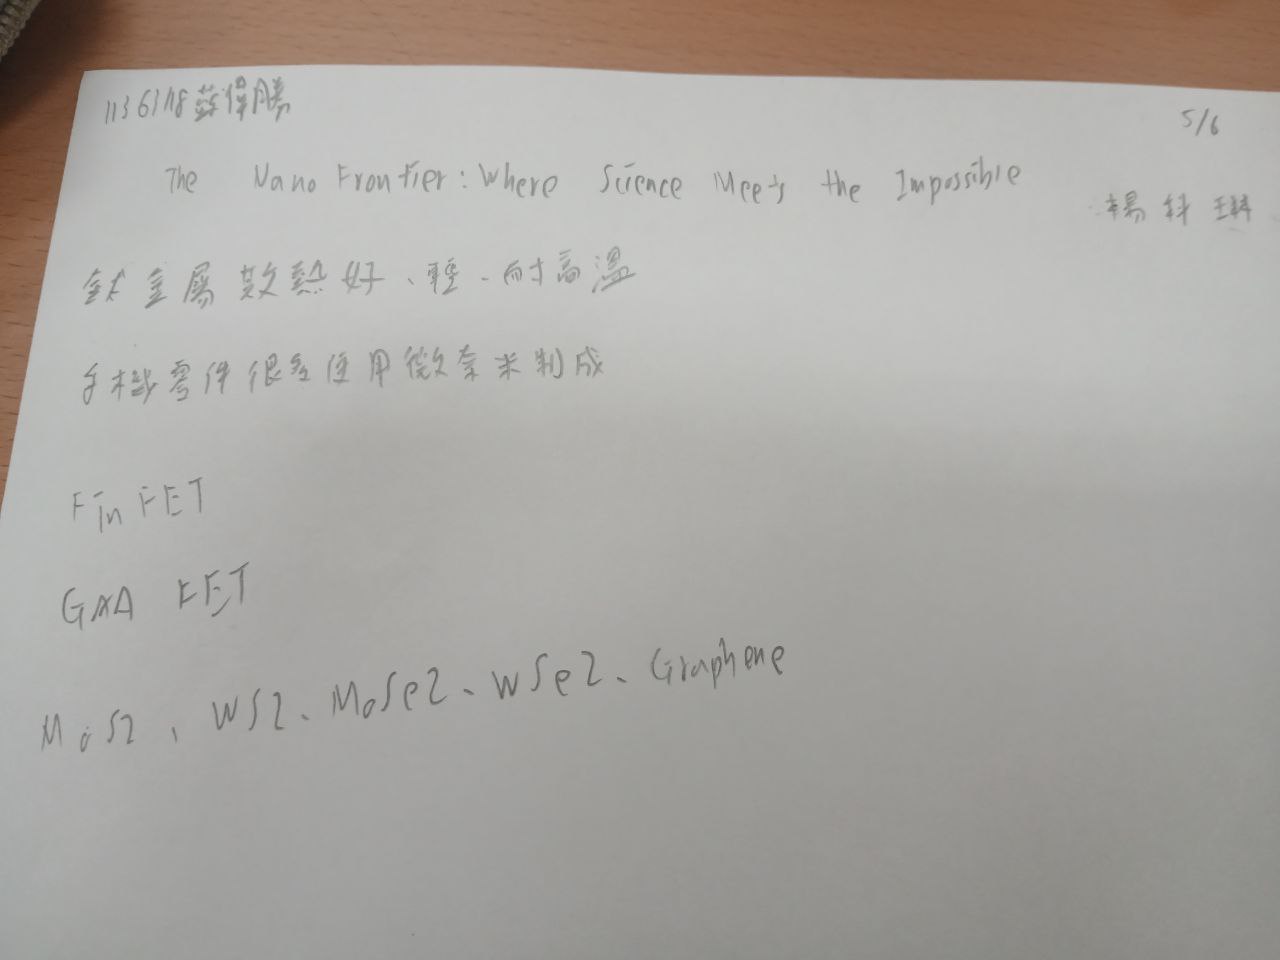 1136118 蘇偉勝
5/6
The Nano Frontier: Where Science Meets the Impossible
楊科
鈦金屬散熱好、輕、耐高溫
手機零件很多使用微奈米制成
FinFET
GAA FET
MoS2、WS2、MoSe2、WSe2、Graphene